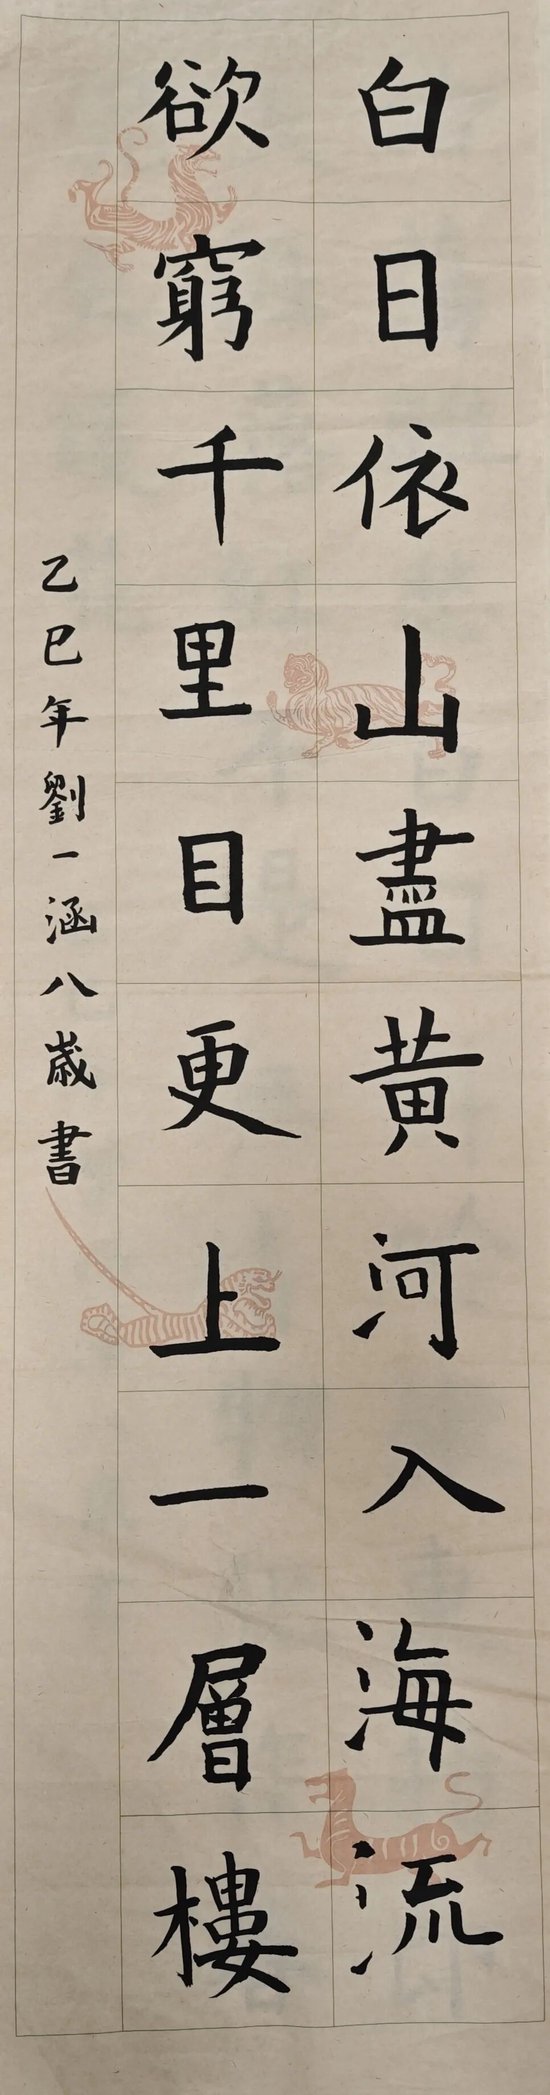 白日依山盡黃河入海流
欲窮千里目更上一層樓
乙巳年劉一涵八歲書